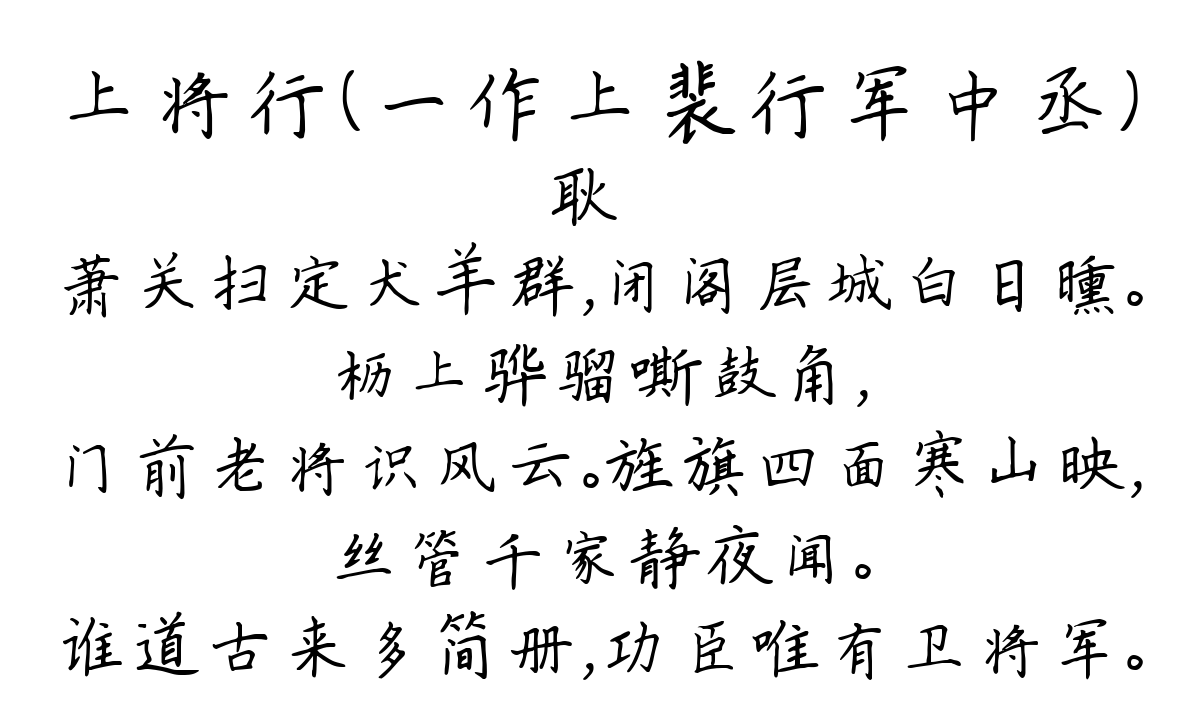 上将行(一作上裴行军中丞)
耿
萧关扫定犬羊群,闭阁层城白日曛。
枥上骅骝嘶鼓角,
门前老将识风云。旌旗四面寒山映,
丝管千家静夜闻。
谁道古来多简册,功臣唯有卫将军。